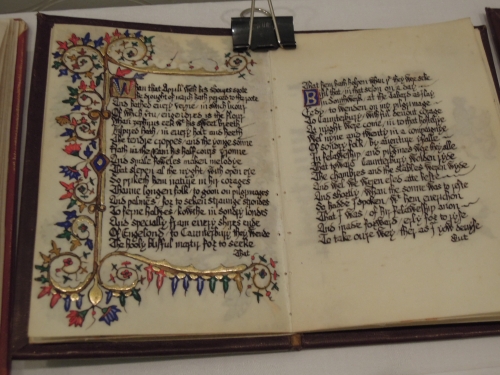 Whan that Aprill with his shoures soote
The droughte of march hath perced to the roote
And bathed every veyne in swich licour
Of which vertu engendred is the flour
Whan zephirus eek with his sweete breeth
Inspired hath in every holt and heeth
The tendre croppes and the yonge sonne
Hath in the Ram his half cours yronne
And smale foweles maken melodye
That slepen al the nyght with open eye
So priketh hem nature in hir corages
Thanne longen folk to goon on pilgrimages
And palmeres for to seken straunge strondes
To ferne halwes kowthe in sondry londes
And specially from every shires ende
Of Engelond to Caunterbury they wende
The hooly blisful martir for to seeke
That
That hem hath holpen whan that they were seeke
Bifil that in that seson on a day
In Southwerk at the Tabard as I lay
Redy to wenden on my pilgrimage
To Caunterbury with ful devout corage
At nyght were come in to that hostelrye
Wel nyne and twenty in a compaignye
Of sondry folk by aventure yfalle
In felaweshipe and pilgrimes were they alle
That toward Caunterbury wolden ryde
The chambres and the stables weren wyde
And wel we weren esed atte beste
And shortly whan the sonne was to reste
So hadde I spoken with hem everichon
That I was of hir felaweshipe anon
And made forward erly for to ryse
To take oure wey ther as I yow devyse
But